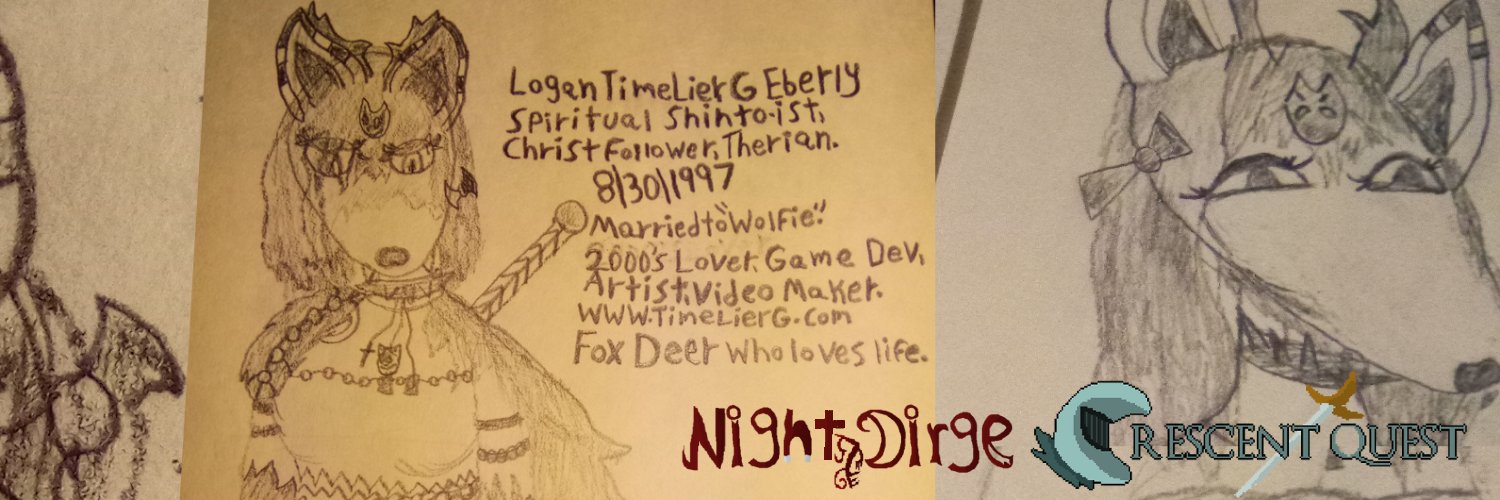 Logan TimeLier G Eberly
Spiritual Shinto-ist,
Christ Follower, Therian.
8/30/1997
Married to "Wolfie".
2000's Lover. Game Dev,
Artist, Video Maker.
WWW.TimeLierG.com
Fox Deer who loves life.
Night Dirge
CRESCENT QUEST